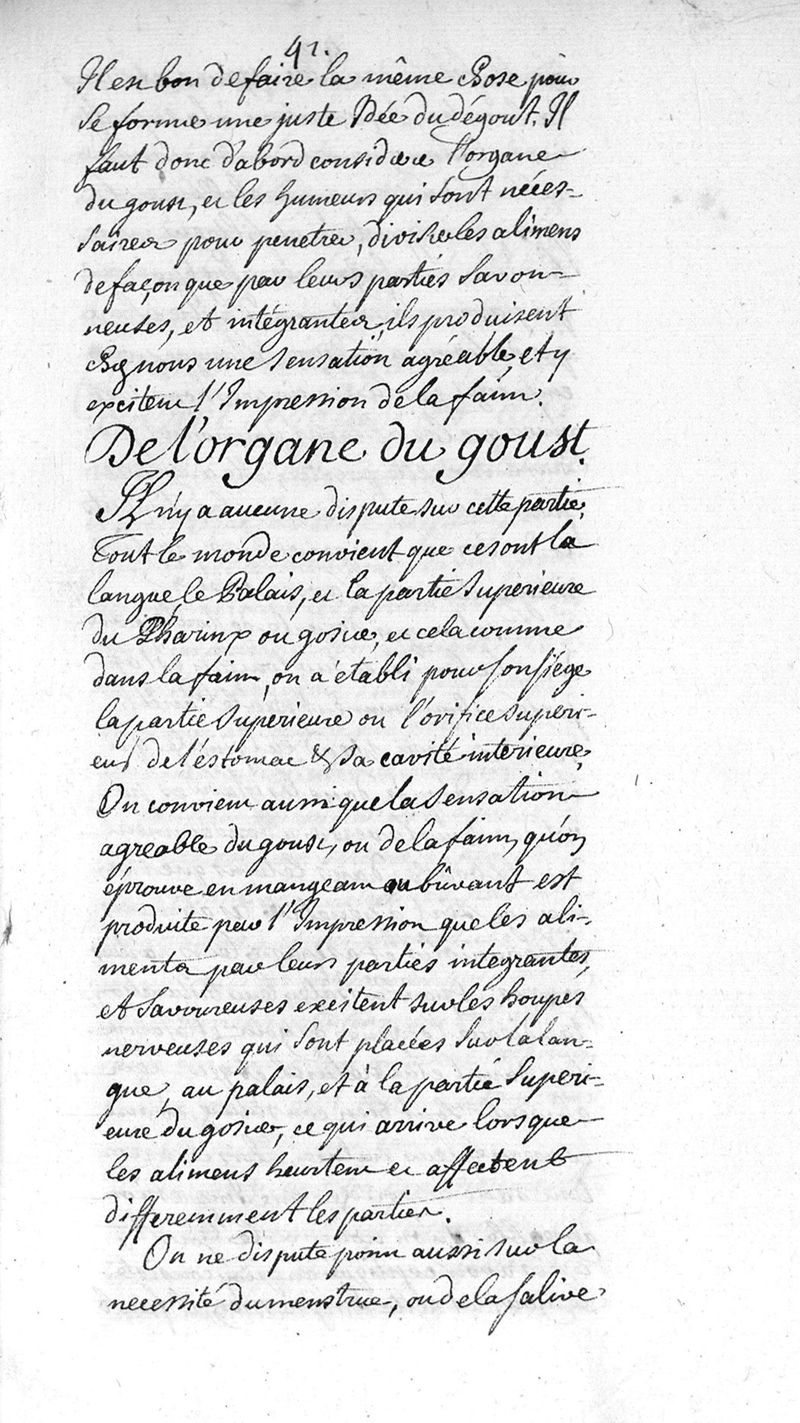 41.
Il est bon de faire la même chose pour
se former une juste Idée du dégout. Il
faut donc d'abord considerer l'organe
du goust, et les humeurs qui sont néces-
saires pour penetrer, diviser les alimens
de façon que par leurs parties savon-
neuses, et intégrantes, ils produisent
chez nous une sensation agréable, et y
excitent l'Impression de la faim.
De l'organe du goust.
Il n'y a aucune dispute sur cette partie,
Tout le monde convient que ce sont la
langue, le Palais, et la partie superieure
du Pharinx ou gosier, et cela comme
dans la faim, on a établi pour son siège
la partie supérieure ou l'orifice superi-
eur de l'estomac & sa cavité interieure,
On convient aussi que la sensation
agreable du goust, ou de la faim, qu'on
éprouve en mangeant ou bûvant est
produite par l'Impression que les ali-
ments par leurs parties integrantes,
et savoureuses excitent sur les houpes
nerveuses qui sont placées sur la lan-
gue, au palais, et à la partie superi-
eure du gosier, ce qui arrive lorsque
les alimens heurtent et affectent
differemment les parties.
On ne dispute point aussi sur la
necessité du menstrue, ou de la salive